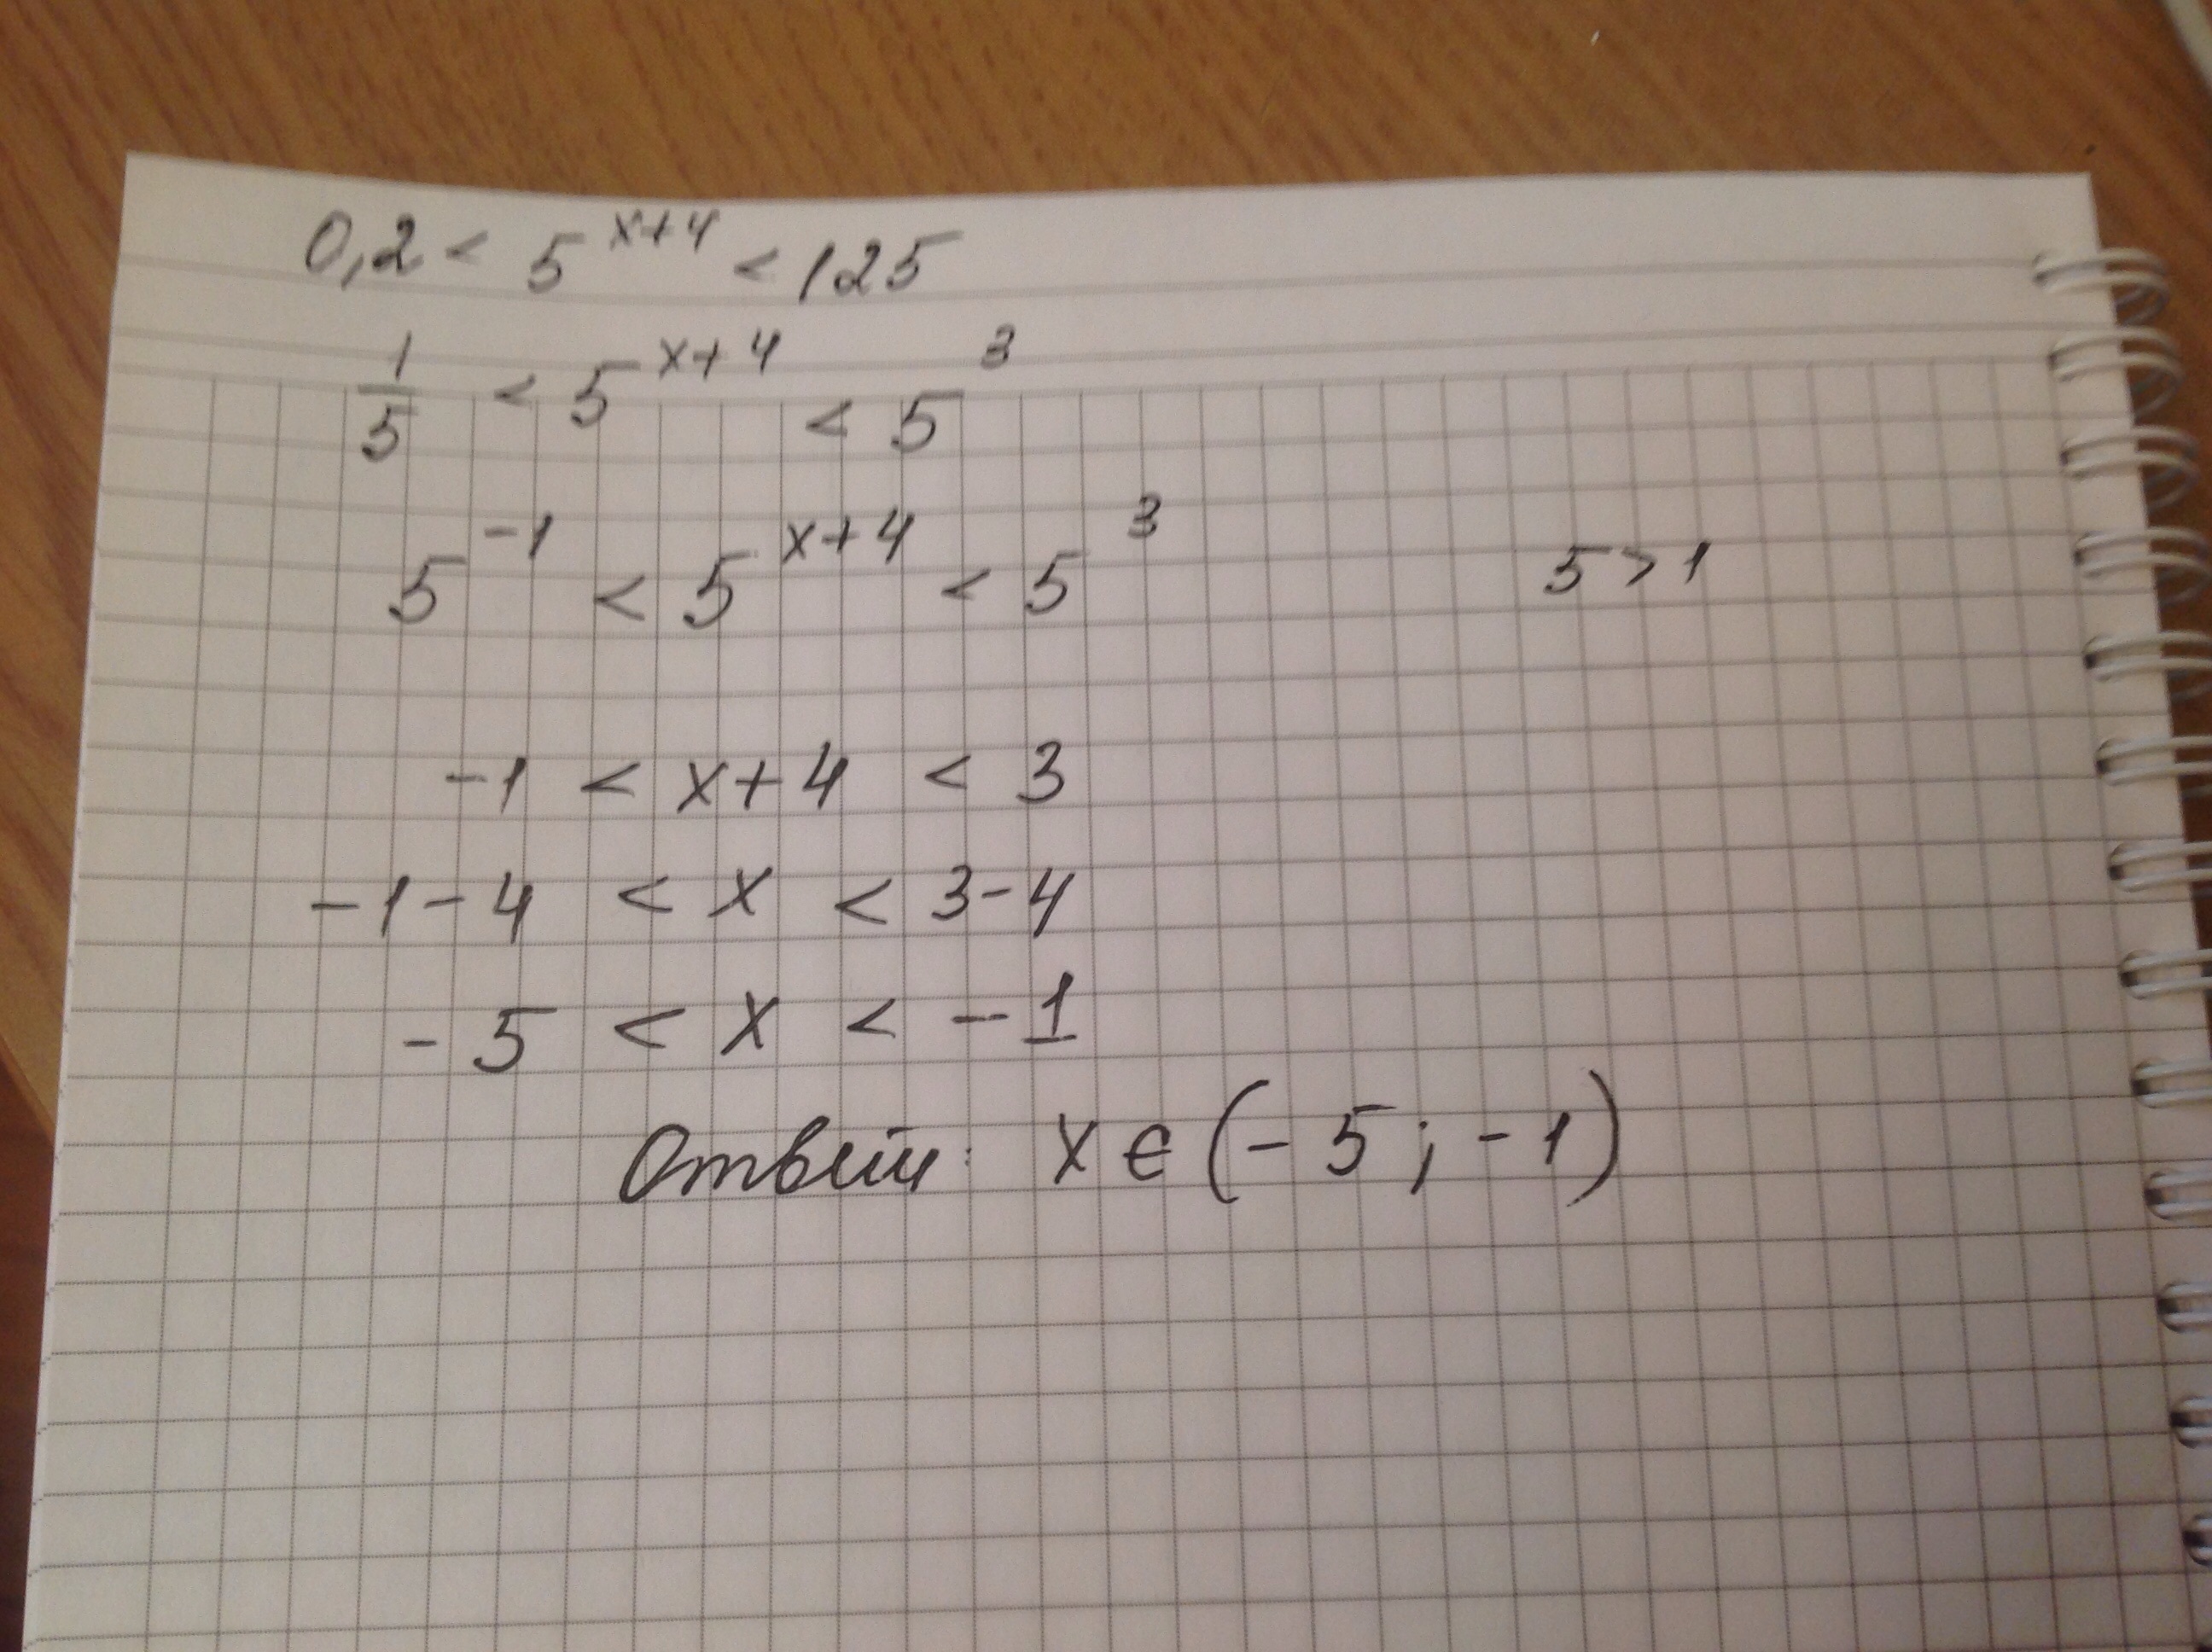 0,2 < 5^{x+4} < 125
1/5 < 5^{x+4} < 5^3
5^{-1} < 5^{x+4} < 5^3 5 > 1
-1 < x+4 < 3
-1-4 < x < 3-4
-5 < x < -1
Ответ: x ∈ (-5; -1)